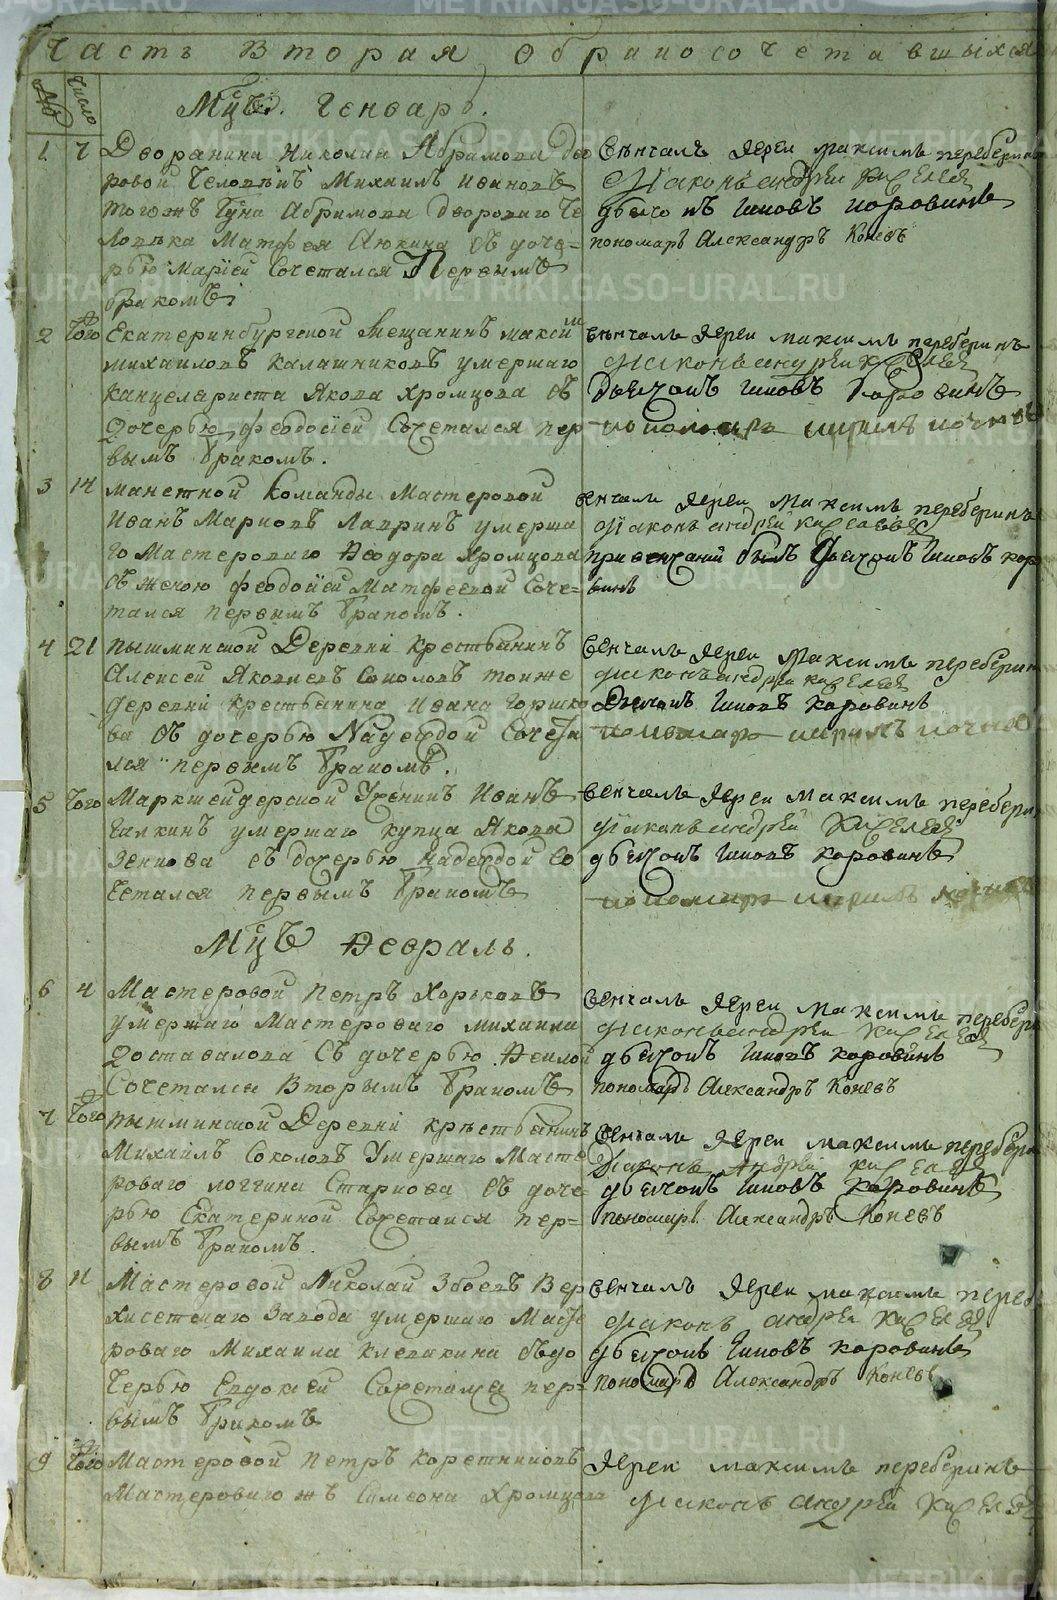 Часть Вторая О бракосочетавшихся
№ Число
Мцъ. Генварь.
1. 7 Дворанина Николая Абрамова дво
ровой Человѣкъ Михаилъ Ивановъ
тогожъ Гдна Абрамова двороваго Че
ловѣка Матфея Анкина Съ доче=
рью Марiей Сочетался Первымъ
бракомъ
Вѣнчалъ Иерей Максимъ переберинъ
Дiаконъ андрей Киселевъ
дьячокъ Iаковъ коровинъ
пономарь Александръ Коневъ
2 того Екатеринбургской Мещанинъ максимъ
михайловъ калашниковъ умершаго
канцеляриста Якова Хромцова съ
Дочерью феодосiей Сочетался пер
вымъ бракомъ.
вѣнчалъ Иерей максимъ переберинъ
дiаконъ андрей Киселевъ
Дьячокъ Iаковъ Коровинъ
пономарь
3 14 манетной Команды Мастеровой
Иванъ Марковъ Лавринъ умерша
го Мастероваго Феодора Хромцова
съ женою феодосiей Матфеевой Соче=
тался первымъ бракомъ.
венчалъ Иерей Максимъ переберинъ
дiаконъ андрей киселевъ
привенчанiй былъ Дьячокъ Iаковъ коро
винъ
4 21 пышминской Деревни крестьянинъ
Алексей Яковлевъ Соколовъ тоиже
деревни крестьянина Ивана Горшко
ва Съ дочерью Надеждой Сочета
лся первымъ бракомъ.
Венчалъ Иерей Максимъ переберин
дiаконъ андрей киселевъ
Дьячокъ Iаковъ коровинъ
пономарь
5 того Маркшейдерской Ученикъ Иванъ
Галкинъ умершаго купца Якова
съ дочерью надеждой со
четался первымъ бракомъ
венчалъ Иерей максимъ перебери
дiаконъ андрей Киселевъ
дьячокъ Iаковъ коровинъ
пономарь
Мцъ Февраль.
6 4 Мастеровой Петръ Хорьковъ
умершаго Мастероваго михаила
Доставалова Съ дочерью Феклой
Сочетался Вторымъ бракомъ
венчалъ Иерей максимъ перебери
дiаконъ андрей Киселевъ
дьячокъ Iаковъ коровинъ
пономарь Александръ Коневъ
7 того пышминской Деревни крестьянинъ
Михаилъ Соколовъ Умершаго Масте
роваго логгина Старкова съ доче=
рью Екатериной Сочетался пер=
вымъ бракомъ.
венчалъ Иерей максимъ перебери
Дiаконъ Андрей киселевъ
дьячокъ Iаковъ коровинъ
пономарь Александръ Коневъ
8 11 Мастеровой Николай Збоевъ Вер
хисетскаго Завода умершаго Масте
роваго Михаила клепикина съ до
черью Евдокiей Сочетался пер=
вымъ бракомъ
венчалъ Иерей максимъ переб
дiаконъ андрей Киселевъ
дьячокъ Iаковъ коровинъ
пономарь Александръ Коневъ
9 того Мастеровой Петръ коретниковъ
Мастероваго жъ Симеона Хромцова
Иерей максимъ переберинъ
дiаконъ андрей Киселевъ